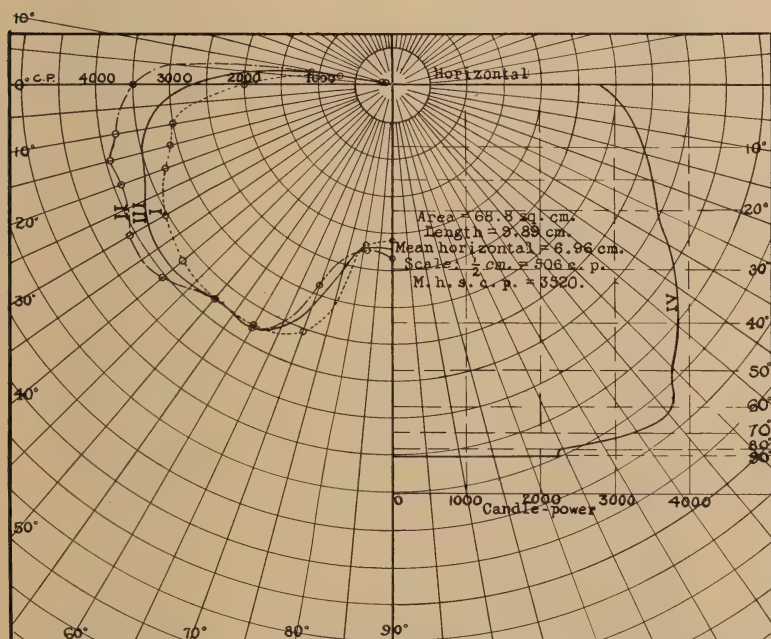 10°
0° C.P. 4000 3000 2000 1000 Horizontal
10°
20°
30°
40°
50°
60° 70° 80° 90°
II III I
Area = 68.8 sq. cm.
Length = 9.89 cm.
Mean horizontal = 6.96 cm.
Scale: 1/2 cm. = 506 c. p.
M. h. s. c. p. = 3520.
IV
10°
20°
30°
40°
50°
60°
70°
80°
90°
0 1000 2000 3000 4000
Candle-power